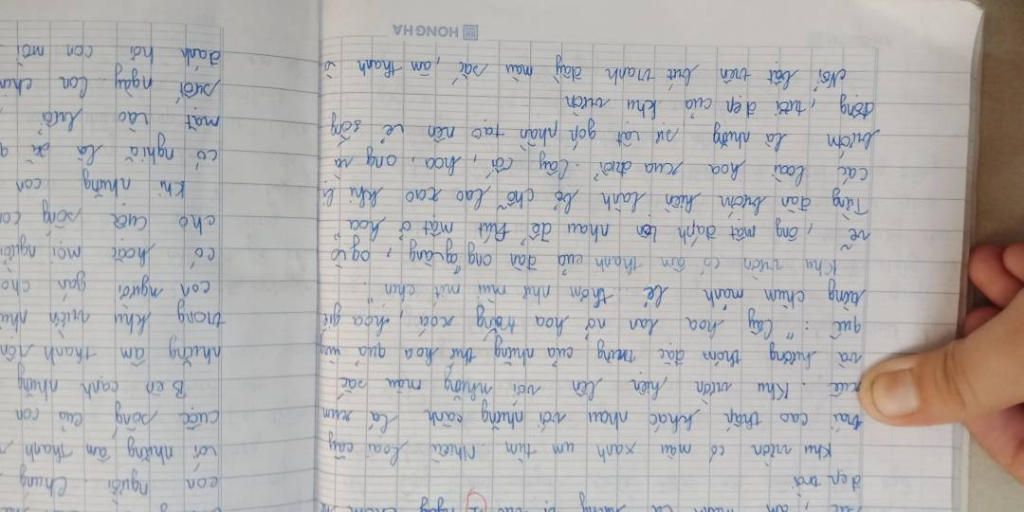 đẹp trời
Khu vườn có màu xanh um tùm. Nhiều loài cây
trái cao thấp khác nhau với những cành lá xum
xuê. Khu vườn hiện lên với những màu sắc
và hương thơm đặc trưng của những thứ hoa quả
quê: "Cây hoa lan nở hoa trắng xóa, hoa giẻ
từng chùm mảnh dẻ. thơm như mùi mít chín".
Khu vườn có âm thanh của đàn ong vàng, ong vò
vẽ, ong mật đánh lộn nhau để hút mật ở hoa
Từng đàn bướm hiền lành bỏ chỗ lao xao khi bị
các loài hoa xua đuổi. Cây cối, hoa, ong và
bướm là những sự vật góp phần tạo nên vẻ sống
động, tươi đẹp của khu vườn
Nổi bật trên bức tranh đầy màu sắc, âm thanh
HONGHA
con người. Chung
với những âm thanh
cuộc sống của con
Bên cạnh những
những âm thanh
trong khu vườn
con người gắn
có hoặc mọi người
cho cuộc sống
Khi những con
có nghĩa là
mặt vào lưới
suối ngày con
đánh hơi con mồi